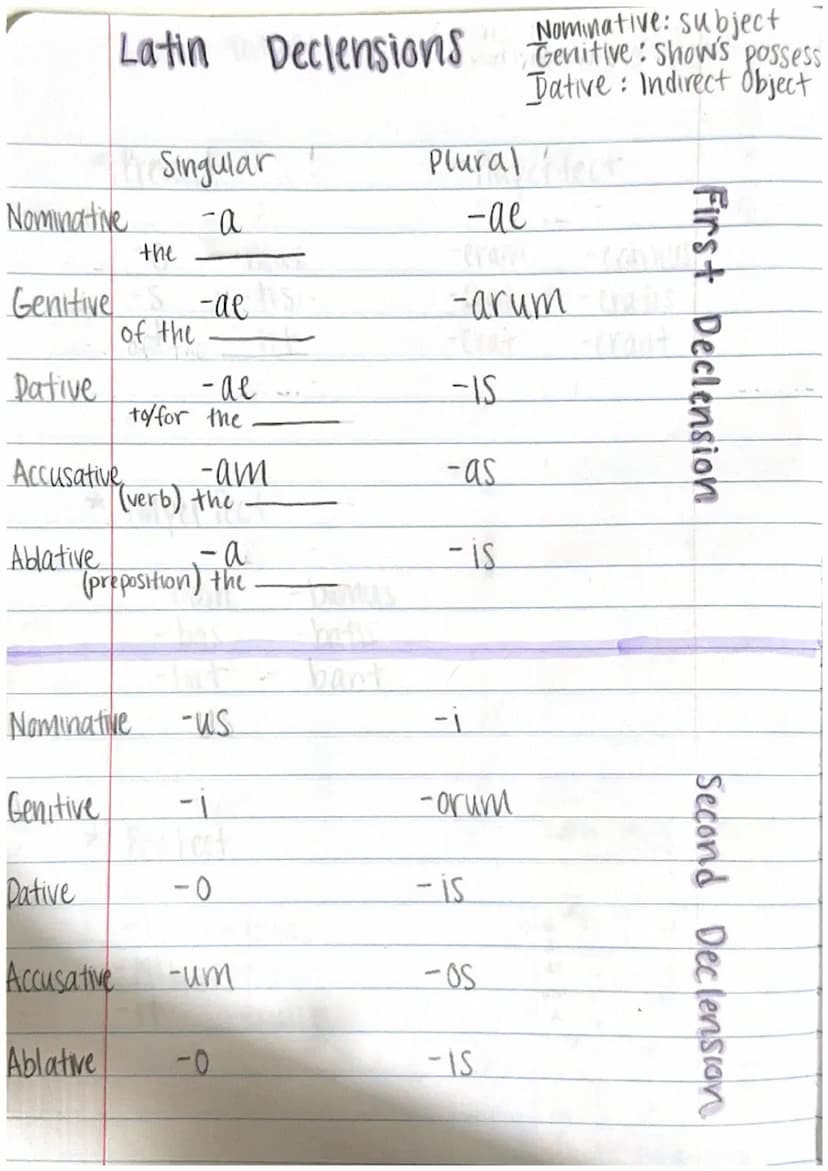 Latin Declensions
Nominative: subject
Genitive: show's possess
Dative: Indirect Object
Singular Plural
Nominative -a -ae
the ______
Genitive -ae -arum
of the ______
Dative -ae -is
to/for the ______
Accusative -am -as
(verb) the ______
Ablative -a -is
(preposition) the ______
First Declension
Nominative -us -i
Genitive -i -orum
Dative -o -is
Accusative -um -os
Ablative -o -is
Second Declension